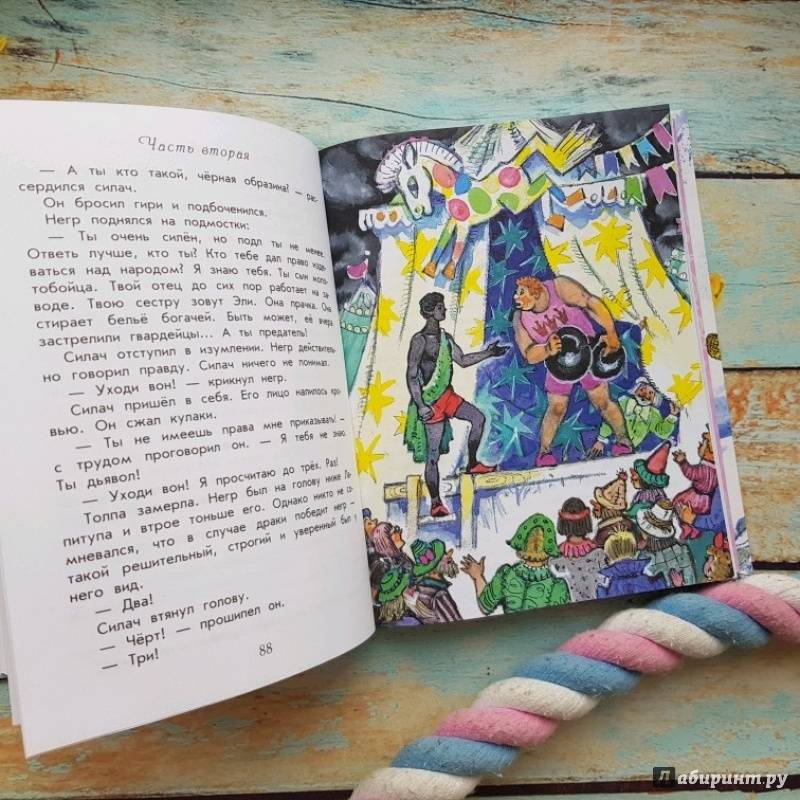 Часть вторая
— А ты кто такой, чёрная образина! — рас-
сердился силач.
Он бросил гири и подбоченился.
Негр поднялся на подмостки:
— Ты очень силён, но подл ты не менее.
Ответь лучше, кто ты? Кто тебе дал право изде-
ваться над народом? Я знаю тебя. Ты сын моло-
тобойца. Твой отец до сих пор работает на за-
воде. Твою сестру зовут Эли. Она прачка. Она
стирает бельё богачей. Быть может, её вчера
застрелили гвардейцы... А ты предатель!
Силач отступил в изумлении. Негр действитель-
но говорил правду. Силач ничего не понимал.
— Уходи вон! — крикнул негр.
Силач пришёл в себя. Его лицо налилось кро-
вью. Он сжал кулаки.
— Ты не имеешь права мне приказывать! —
с трудом проговорил он. — Я тебя не знаю.
Ты дьявол!
— Уходи вон! Я просчитаю до трёх. Раз!
Толпа замерла. Негр был на голову ниже Ла-
питупа и втрое тоньше его. Однако никто не со-
мневался, что в случае драки победит негр —
такой решительный, строгий и уверенный был у
него вид.
— Два!
Силач втянул голову.
— Чёрт! — прошипел он.
— Три!
88
Лабиринт.ру